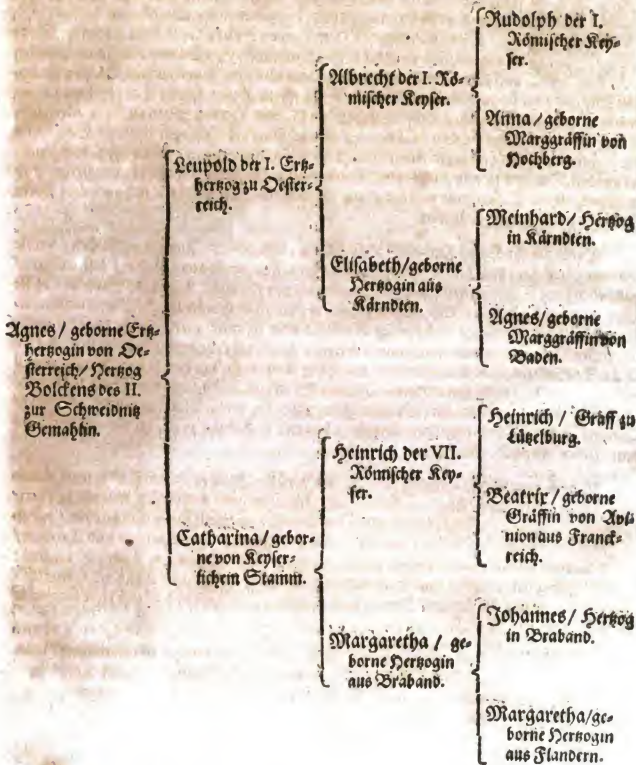 Agnes / geborne Ertz-
hertzogin von Oe-
sterreich / Hertzog
Bolckens des II.
zur Schweidnitz
Gemahlin.
Leupold der I. Ertz-
hertzog zu Oester-
reich.
Catharina / gebor-
ne von Keyser-
lichem Stamm.
Albrecht der I. Rö-
mischer Keyser.
Elisabeth / geborne
Hertzogin aus
Kärndten.
Heinrich der VII.
Römischer Key-
ser.
Margaretha / ge-
borne Hertzogin
aus Braband.
Rudolph der I.
Römischer Key-
ser.
Anna / geborne
Marggräffin von
Hochberg.
Meinhard / Hertzog
in Kärndten.
Agnes / geborne
Marggräffin von
Baden.
Heinrich / Graff zu
Lützelburg.
Beatrix / geborne
Gräffin von Avi-
nion aus Franck-
reich.
Johannes / Hertzog
in Braband.
Margaretha / ge-
borne Hertzogin
aus Flandern.